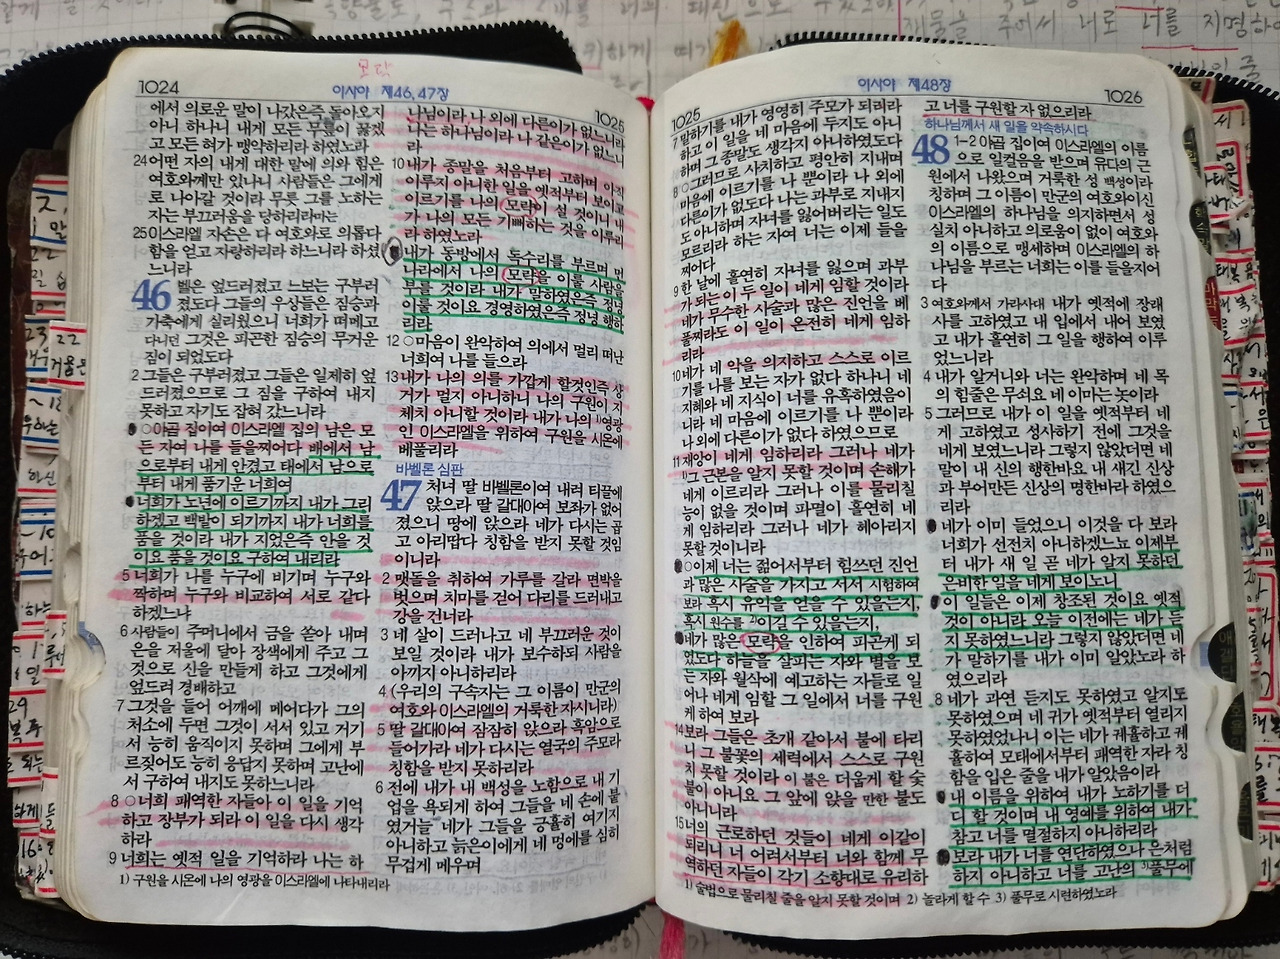 모략
1024
이사야 제46,47장
1025
에서 의로운 말이 나갔은즉 돌아오지
아니 하나니 내게 모든 무릎이 꿇겠
고 모든 혀가 맹약하리라 하였노라
24 어떤 자의 내게 대한 말에 의와 힘은
여호와께만 있나니 사람들은 그에게
로 나아갈 것이라 무릇 그를 노하는
자는 부끄러움을 당하리라마는
25 이스라엘 자손은 다 여호와로 의롭다
함을 얻고 자랑하리라 하느니라 하셨
느니라
46 벨은 엎드러졌고 느보는 구부러
졌도다 그들의 우상들은 짐승과
가축에게 실리웠으니 너희가 떠메고
다니던 그것은 피곤한 짐승의 무거운
짐이 되었도다
2 그들은 구부러졌고 그들은 일제히 엎
드러졌으므로 그 짐을 구하여 내지
못하고 자기도 잡혀 갔느니라
○야곱 집이여 이스라엘 집의 남은 모
든 자여 나를 들을찌어다 배에서 남
으로부터 내게 안겼고 태에서 남으로
부터 내게 품기운 너희여
너희가 노년에 이르기까지 내가 그리
하겠고 백발이 되기까지 내가 너희를
품을 것이라 내가 지었은즉 안을 것
이요 품을 것이요 구하여 내리라
5 너희가 나를 누구에 비기며 누구와
짝하며 누구와 비교하여 서로 같다
하겠느냐
6 사람들이 주머니에서 금을 쏟아 내며
은을 저울에 달아 장색에게 주고 그
것으로 신을 만들게 하고 그것에게
엎드러 경배하고
7 그것을 들어 어깨에 메어다가 그의
처소에 두면 그것이 서서 있고 거기
서 능히 움직이지 못하며 그에게 부
르짖어도 능히 응답지 못하며 고난에
서 구하여 내지도 못하느니라
8 ○너희 패역한 자들아 이 일을 기억
하고 장부가 되라 이 일을 다시 생각
하라
9 너희는 옛적 일을 기억하라 나는 하
1) 구원을 시온에 나의 영광을 이스라엘에 나타내리라
나님이라 나 외에 다른이가 없느니라
나는 하나님이라 나 같은이가 없느니
라
10 내가 종말을 처음부터 고하며 아직
이루지 아니한 일을 옛적부터 보이고
이르기를 나의 모략이 설 것이니 내
가 나의 모든 기뻐하는 것을 이루리
라 하였노라
내가 동방에서 독수리를 부르며 먼
나라에서 나의 모략을 이룰 사람을
부를 것이라 내가 말하였은즉 정녕
이룰 것이요 경영하였은즉 정녕 행하
리라
12 ○마음이 완악하여 의에서 멀리 떠난
너희여 나를 들으라
13 내가 나의 의를 가깝게 할것인즉 상
거가 멀지 아니하니 나의 구원이 지
체치 아니할 것이라 내가 나의 1)영광
인 이스라엘을 위하여 구원을 시온에
베풀리라
바벨론 심판
47 처녀 딸 바벨론이여 내려 티끌에
앉으라 딸 갈대아여 보좌가 없어
졌으니 땅에 앉으라 네가 다시는 곱
고 아리땁다 칭함을 받지 못할 것임
이니라
2 맷돌을 취하여 가루를 갈라 면박을
벗으며 치마를 걷어 다리를 드러내고
강을 건너라
3 네 살이 드러나고 네 부끄러운 것이
보일 것이라 내가 보수하되 사람을
아끼지 아니하리라
4 (우리의 구속자는 그 이름이 만군의
여호와 이스라엘의 거룩한 자시니라)
5 딸 갈대아여 잠잠히 앉으라 흑암으로
들어가라 네가 다시는 열국의 주모라
칭함을 받지 못하리라
6 전에 내가 내 백성을 노함으로 내 기
업을 욕되게 하여 그들을 네 손에 붙
였거늘 네가 그들을 긍휼히 여기지
아니하고 늙은이에게 네 멍에를 심히
무겁게 메우며
1025
이사야 제48장
1026
7 말하기를 내가 영영히 주모가 되리라
하고 이 일을 네 마음에 두지도 아니
하며 그 종말도 생각지 아니하였도다
8 ○그러므로 사치하고 평안히 지내며
마음에 이르기를 나 뿐이라 나 외에
다른이가 없도다 나는 과부로 지내지
도 아니하며 자녀를 잃어버리는 일도
모르리라 하는 자여 너는 이제 들을
찌어다
9 한 날에 홀연히 자녀를 잃으며 과부
가 되는 이 두 일이 네게 임할 것이라
네가 무수한 사술과 많은 진언을 베
풀찌라도 이 일이 온전히 네게 임하
리라
10 네가 네 악을 의지하고 스스로 이르
기를 나를 보는 자가 없다 하나니 네
지혜와 네 지식이 너를 유혹하였음이
니라 네 마음에 이르기를 나 뿐이라
나 외에 다른이가 없다 하였으므로
11 재앙이 네게 임하리라 그러나 네가
1)그 근본을 알지 못할 것이며 손해가
네게 이르리라 그러나 이를 물리칠
능이 없을 것이며 파멸이 홀연히 네
게 임하리라 그러나 네가 헤아리지
못할 것이니라
○이제 너는 젊어서부터 힘쓰던 진언
과 많은 사술을 가지고 서서 시험하여
보라 혹시 유익을 얻을 수 있을는지,
혹시 원수를 2)이길 수 있을는지,
네가 많은 모략을 인하여 피곤케 되
었도다 하늘을 살피는 자와 별을 보
는 자와 월삭에 예고하는 자들로 일
어나 네게 임할 그 일에서 너를 구원
케 하여 보라
14 보라 그들은 초개 같아서 불에 타리
니 그 불꽃의 세력에서 스스로 구원
치 못할 것이라 이 불은 더웁게 할 숯
불이 아니요 그 앞에 앉을 만한 불도
아니니라
15 너의 근로하던 것들이 네게 이같이
되리니 너 어려서부터 너와 함께 무
역하던 자들이 각기 소향대로 유리하
1) 술법으로 물리칠 줄을 알지 못할 것이며 2) 놀라게 할 수 3) 풀무로 시련하였노라
고 너를 구원할 자 없으리라
하나님께서 새 일을 약속하시다
48 1-2 야곱 집이여 이스라엘의 이름
으로 일컬음을 받으며 유다의 근
원에서 나왔으며 거룩한 성 백성이라
칭하며 그 이름이 만군의 여호와이신
이스라엘의 하나님을 의지하면서 성
실치 아니하고 의로움이 없이 여호와
의 이름으로 맹세하며 이스라엘의 하
나님을 부르는 너희는 이를 들을지어
다
3 여호와께서 가라사대 내가 옛적에 장래
사를 고하였고 내 입에서 내어 보였
고 내가 홀연히 그 일을 행하여 이루
었느니라
4 내가 알거니와 너는 완악하며 네 목
의 힘줄은 무쇠요 네 이마는 놋이라
5 그러므로 내가 이 일을 옛적부터 네
게 고하였고 성사하기 전에 그것을
네게 보였느니라 그렇지 않았더면 네
말이 내 신의 행한바요 내 새긴 신상
과 부어만든 신상의 명한바라 하였으
리라
네가 이미 들었으니 이것을 다 보라
너희가 선전치 아니하겠느뇨 이제부
터 내가 새 일 곧 네가 알지 못하던
은비한 일을 네게 보이노니
이 일들은 이제 창조된 것이요 옛적
것이 아니라 오늘 이전에는 네가 듣
지 못하였느니라 그렇지 않았더면 네
가 말하기를 내가 이미 알았노라 하
였으리라
8 네가 과연 듣지도 못하였고 알지도
못하였으며 네 귀가 옛적부터 열리지
못하였었나니 이는 네가 궤휼하고 궤
휼하여 모태에서부터 패역한 자라 칭
함을 입은 줄을 내가 알았음이라
내 이름을 위하여 내가 노하기를 더
디 할 것이며 내 영예를 위하여 내가
참고 너를 멸절하지 아니하리라
보라 내가 너를 연단하였으나 은처럼
하지 아니하고 너를 고난의 3)풀무에